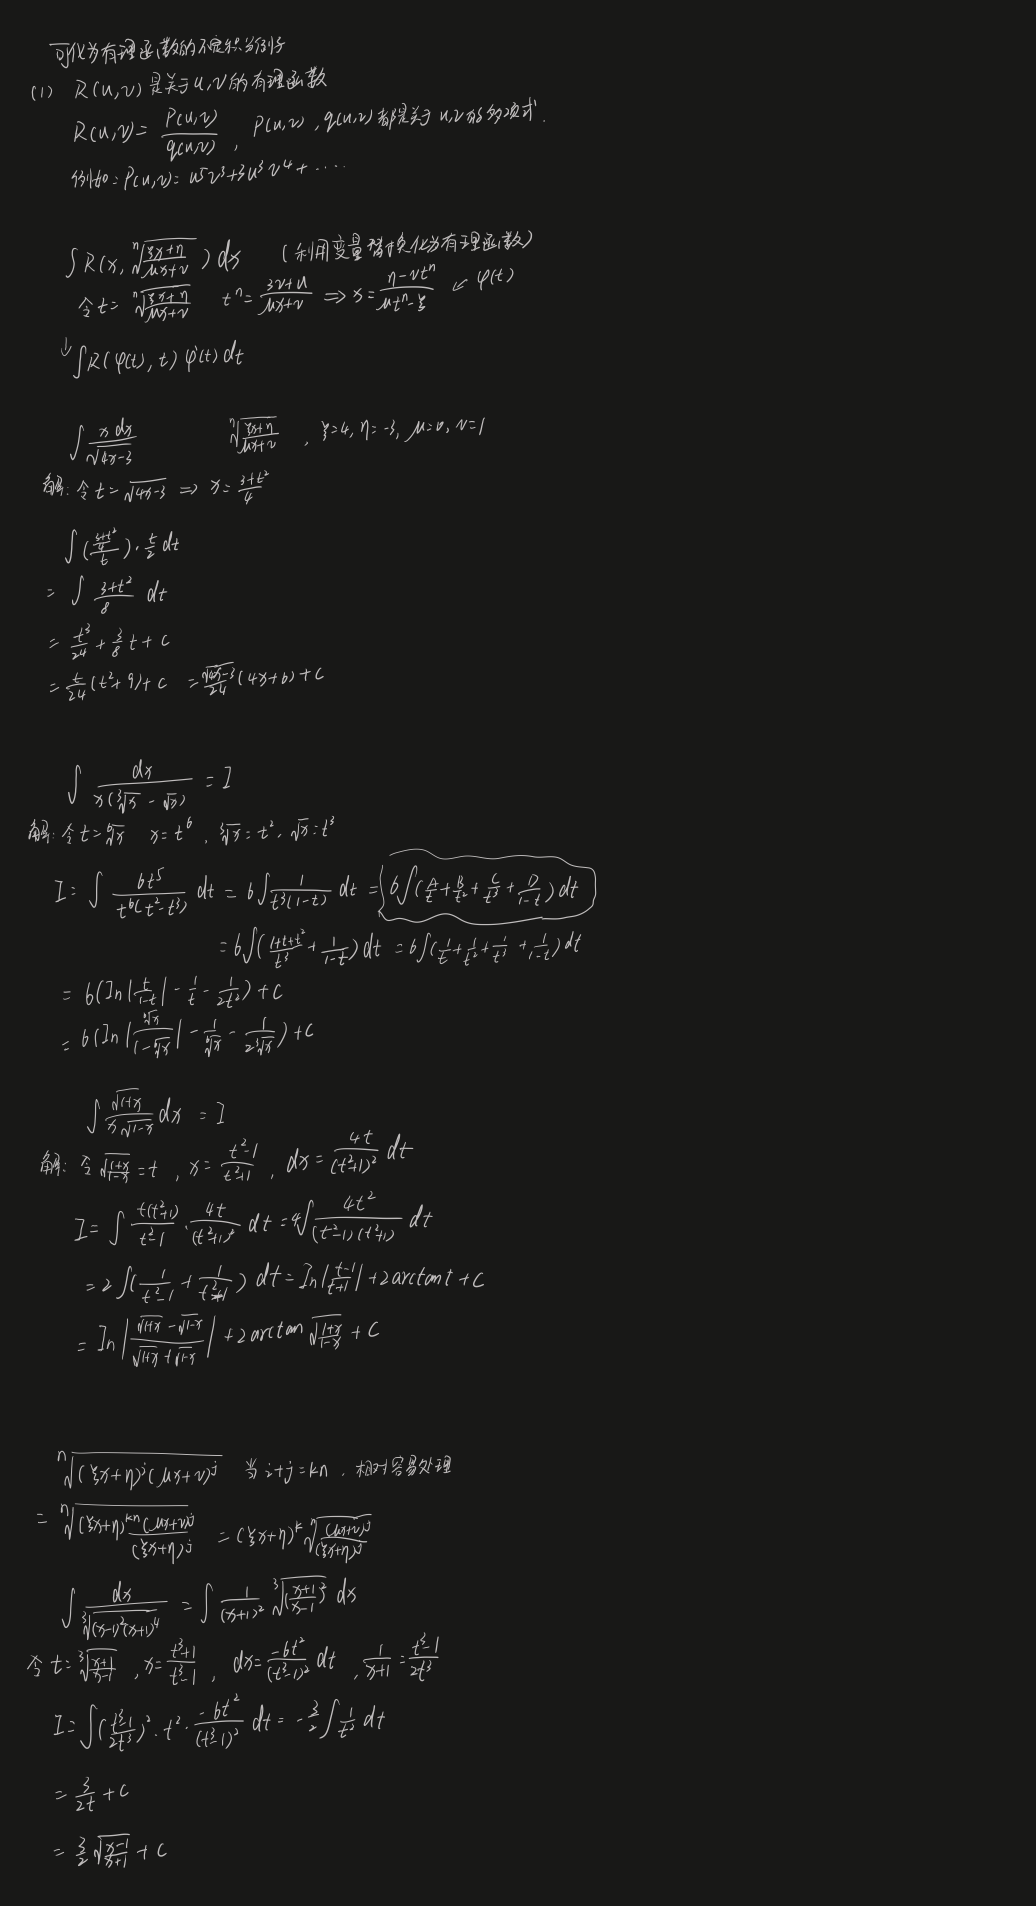 可化为有理函数的不定积分例子
(1) R(u,v)是关于u,v的有理函数
R(u,v)= p(u,v)/q(u,v) , p(u,v),q(u,v)都是关于u,v的多项式.
例如: P(u,v)= u⁵v³+3u³v⁴+····
∫R(x, ⁿ√((ξx+η)/(μx+ν)))dx (利用变量替换化为有理函数)
令t= ⁿ√((ξx+η)/(μx+ν)) tⁿ= (3v+u)/(μx+ν) ⇒ x= (η-νtⁿ)/(μtⁿ-ξ) ↙ φ(t)
↓∫R(φ(t), t) φ'(t) dt
∫ x dx/√(4x-3) ⁿ√((ξx+η)/(μx+ν)) , ξ=4, η=-3, μ=0, ν=1
解: 令t=√(4x-3) ⇒ x= (3+t²)/4
∫(((3+t²)/4)/t)·t/2 dt
= ∫ (3+t²)/8 dt
= t³/24 + 3/8 t + C
= t/24 (t²+9)+C = √(4x-3)/24 (4x+6)+C
∫ dx/(x(³√x - √x)) = I
解: 令t=⁶√x x=t⁶ , ³√x=t², √x=t³
I= ∫ 6t⁵/(t⁶(t²-t³)) dt = 6∫ 1/(t³(1-t)) dt = 6∫(A/t + B/t² + C/t³ + D/(1-t)) dt
= 6∫((1+t+t²)/t³ + 1/(1-t)) dt = 6∫(1/t + 1/t² + 1/t³ + 1/(1-t)) dt
= 6(In|t/(1-t)| - 1/t - 1/(2t²)) + C
= 6(In|⁶√x/(1-⁶√x)| - 1/⁶√x - 1/(2³√x)) + C
∫ √(1+x)/(x√(1-x)) dx = I
解: 令√((1+x)/(1-x)) = t , x= (t²-1)/(t²+1) , dx= 4t/(t²+1)² dt
I= ∫ t(t²+1)/(t²-1) · 4t/(t²+1)² dt = 4∫ 4t²/((t²-1)(t²+1)) dt
= 2∫(1/(t²-1) + 1/(t²+1)) dt = In|(t-1)/(t+1)| + 2arctant + C
= In|(√(1+x) - √(1-x))/(√(1+x) + √(1-x))| + 2arctan √((1+x)/(1-x)) + C
ⁿ√((ξx+η)ⁱ(μx+ν)ʲ) 当i+j=kn , 相对容易处理
= ⁿ√((ξx+η)ᵏⁿ(μx+ν)ʲ/(ξx+η)ʲ) = (ξx+η)ᵏ ⁿ√((μx+ν)ʲ/(ξx+η)ʲ)
∫ dx/³√((x-1)²(x+1)⁴) = ∫ 1/(x+1)² ³√(((x+1)/(x-1))²) dx
令t= ³√((x+1)/(x-1)) , x= (t³+1)/(t³-1) , dx= -6t²/(t³-1)² dt , 1/(x+1) = (t³-1)/(2t³)
I= ∫((t³-1)/(2t³))² · t² · -6t²/(t³-1)² dt = -3/2 ∫ 1/t² dt
= 3/(2t) + C
= 3/2 √((x-1)/(x+1)) + C